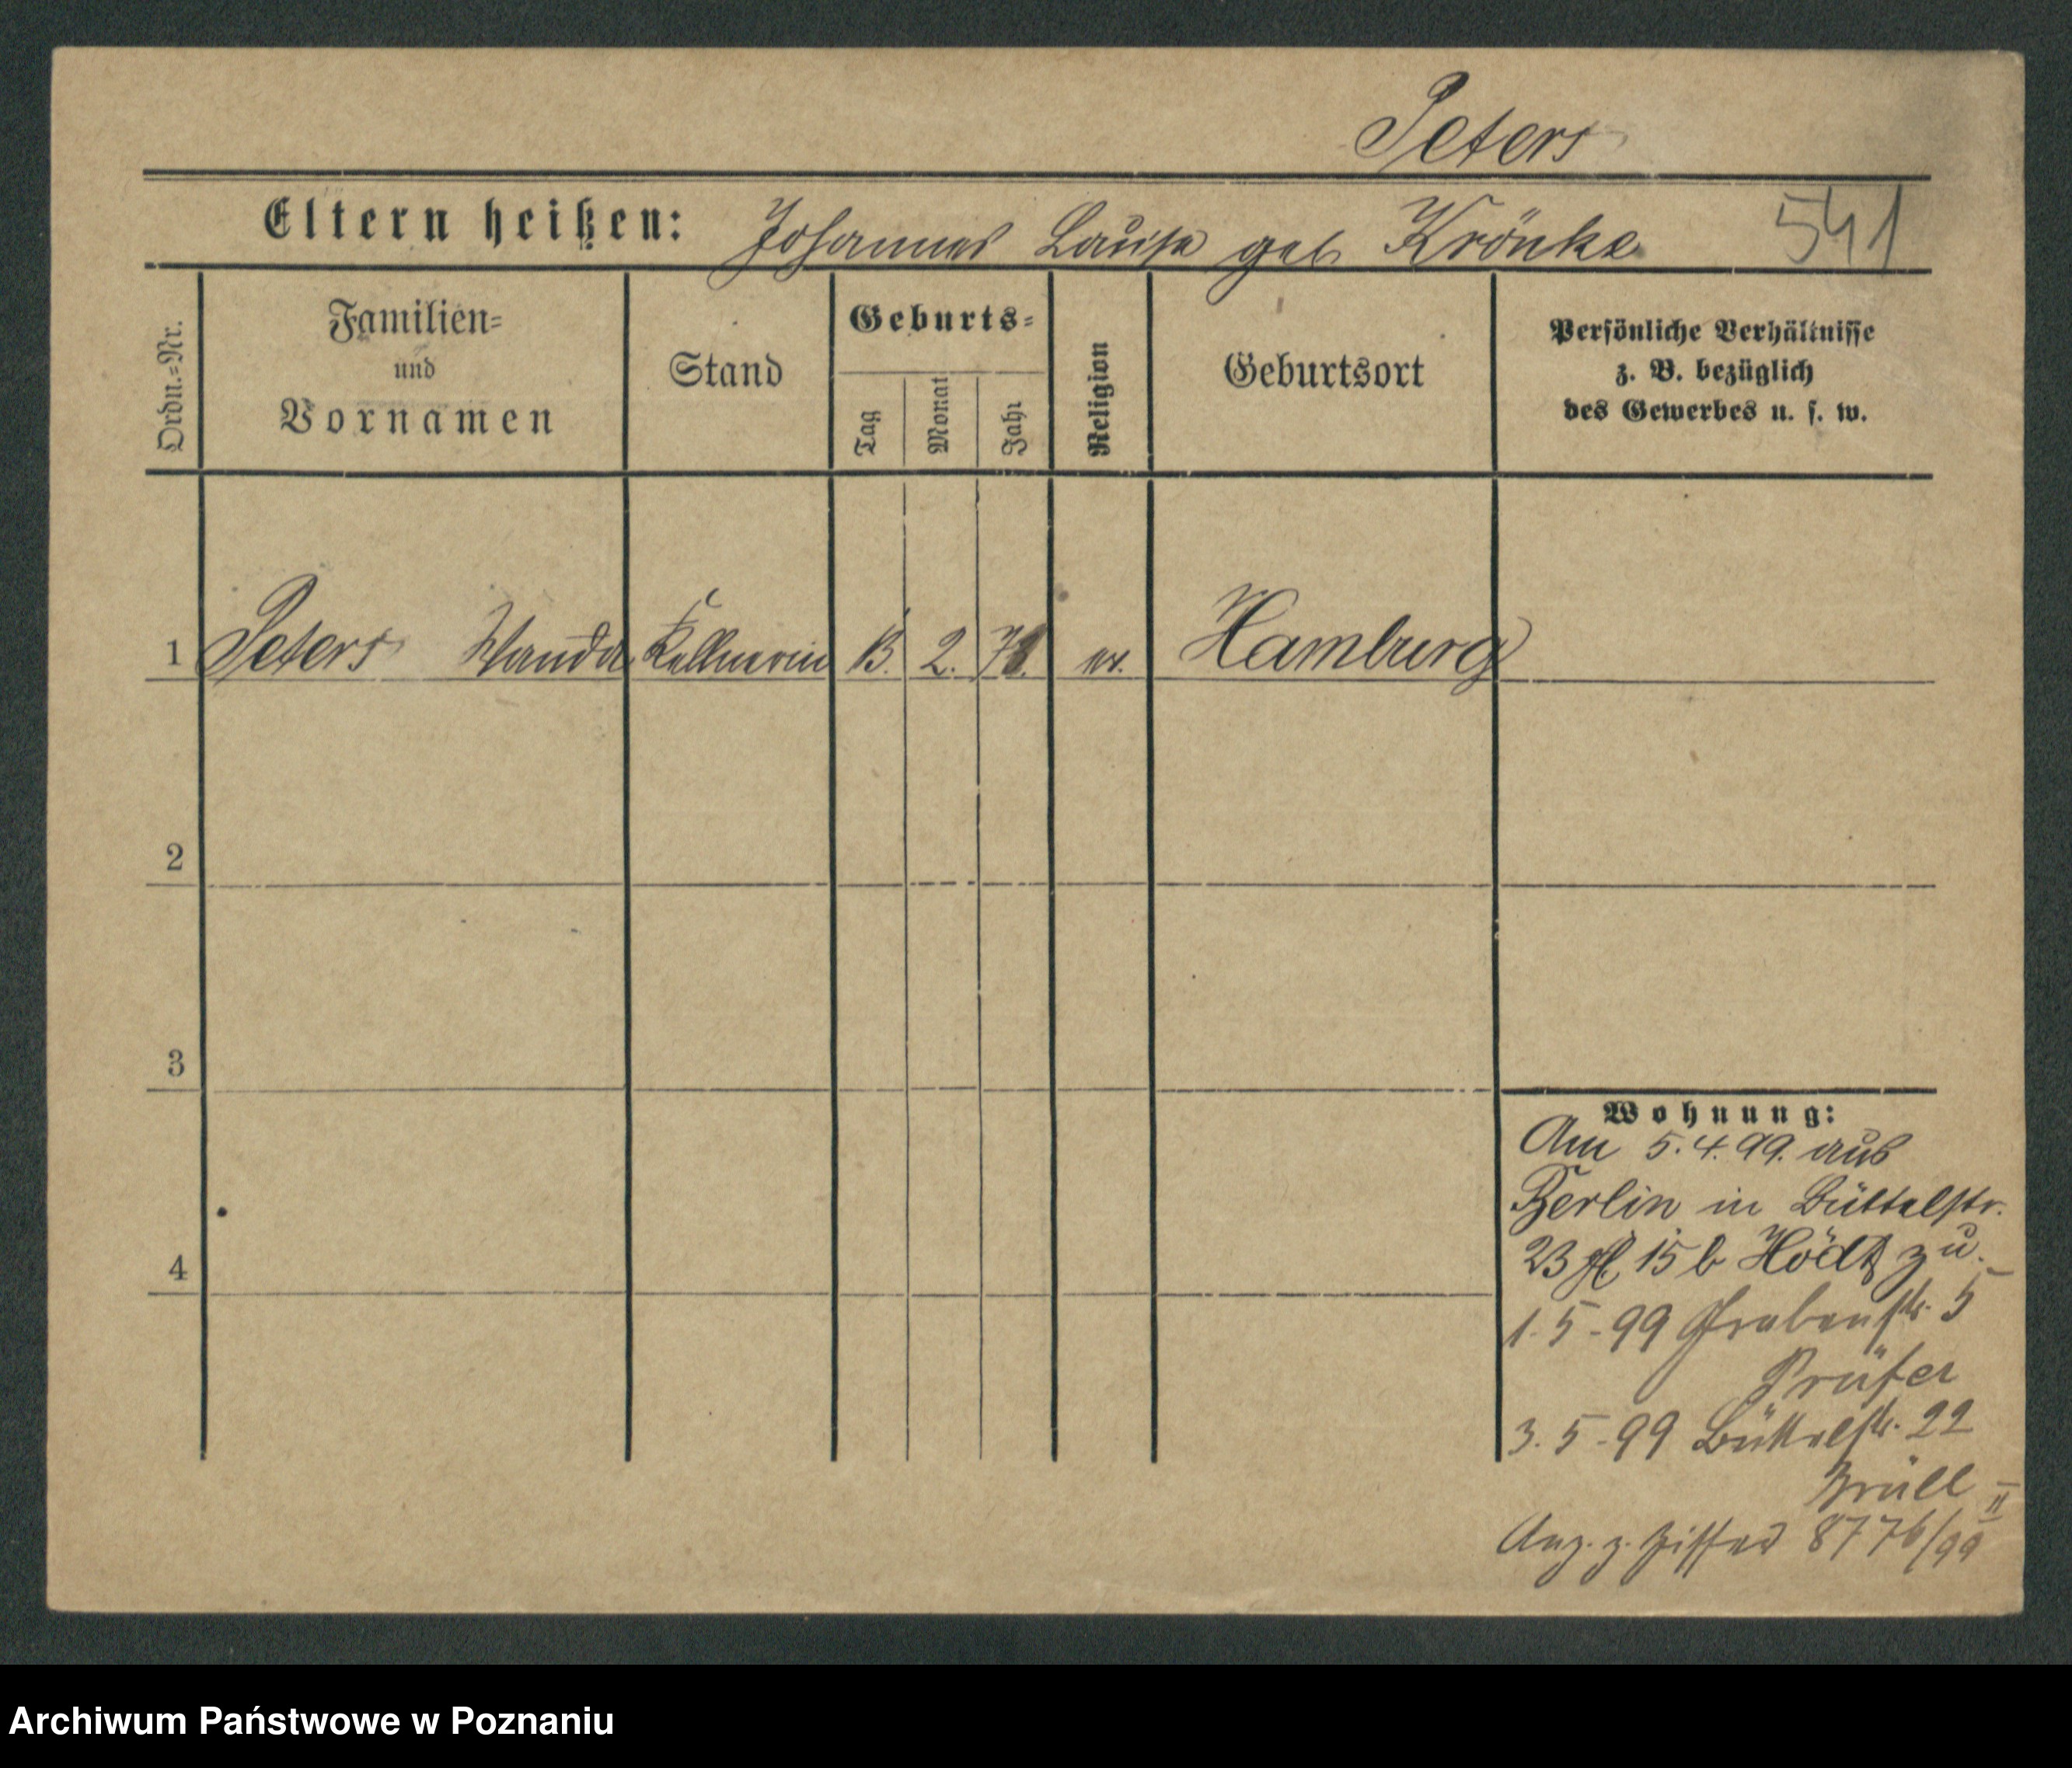 Peters
Eltern heißen: Johannes Louise geb. Krönke 541
Ordn.=Nr.
Familien=
und
Vornamen
Stand
Geburts=
Tag
Monat
Jahr
Religion
Geburtsort
Persönliche Verhältnisse
z. B. bezüglich
des Gewerbes u. s. w.
1 Peters Wanda Kellnerin 13. 2. ev. Hamburg
2
3
4
Wohnung:
Am 5.4.99. aus
Berlin in Büttelstr.
23 15 b zu.
1.5-99 Grabenstr. 5
Prüfer
3.5-99 Büttelstr. 22
Brüll II
8776/99
Archiwum Państwowe w Poznaniu